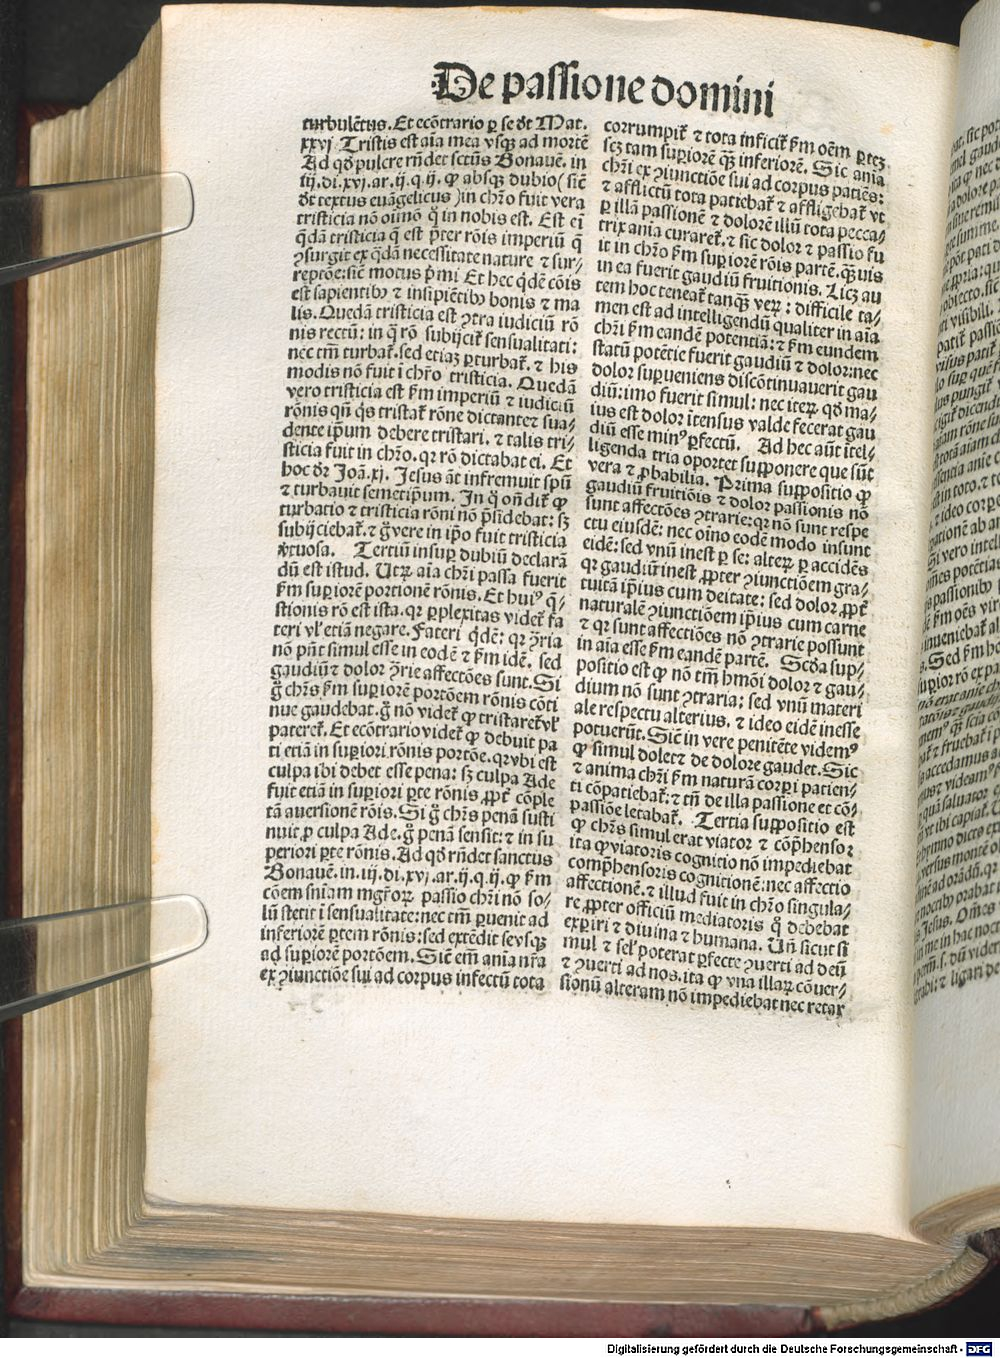 De passione domini
turbulētus. Et ecōtrario ꝑ se dt Mat.
xxvj Tristis est aīa mea vsqꝫ ad mortē
Ad qd pulcre rñdet sctūs Bonauē. in
iij. di. xvj. ar. ij. q. ij. ꝙ absqꝫ dubio (sic̄
dt textus euāgelicus) in chro fuit vera
tristicia nō oīmō q̄ in nobis est. Est eī
q̄dā tristicia q̄ est p̄ter rōis imperiū q̄
ꝯsurgit ex q̄dā necessitate nature ⁊ sur-
reptōe: sic̄ motus p̄mi Et hec q̄dē cōis
est sapientibꝰ ⁊ insipiētibꝰ bonis ⁊ ma
lis. Quedā tristicia est ꝯtra iudiciū rō
nis rectū: in q̄ rō subijcit̄ sensualitati:
nec tm̄ turbat̄. sed etiaꝫ ꝑturbat̄. ⁊ his
modis nō fuit ī chro tristicia. Quedā
vero tristicia est ẜm imperiū ⁊ iudiciū
rōnis qn̄ q̄s tristat̄ rōne dictante ⁊ sua-
dente ip̄um debere tristari. ⁊ talis tri-
sticia fuit in chro. qr rō dictabat ei. Et
hoc dr Joā. xj. Jesus āt infremuit sp̄u
⁊ turbauit semetip̄um. In q̄ oñdit̄ ꝙ
turbatio ⁊ tristicia rōni nō p̄sidebat: sꝫ
subijciebat̄. ⁊ ḡ vere in ip̄o fuit tristicia
virtuosa. Tertiū insup dubiū declarā
dū est istud. Utꝝ aīa chri passa fuerit
ẜm supiorē portionē rōnis. Et huiꝰ q̄-
stionis rō est ista. qr ꝑplexitas videt̄ fa
teri vl' etiā negare. Fateri q̄dē: qr ꝯ̄ria
nō pn̄t simul esse in eodē ⁊ ẜm idē. sed
gaudiū ⁊ dolor ꝯ̄rie affectōes sunt. Si
ḡ chrs ẜm supiorē portōem rōnis cōti
nue gaudebat. ḡ nō videt̄ ꝙ tristaret̄ vl'
pateret̄. Et ecōtrario videt̄ ꝙ debuit pa
ti etiā in supiori rōnis portōe. qr vbi est
culpa ibi debet esse pena: sꝫ culpa Ade
fuit etiā in supiori ꝑte rōnis ꝓpt̄ cōple
tā auersionē rōis. Si ḡ chrs penā susti
nuit ꝓ culpa Ade. ḡ penā sensit: ⁊ in su
periori ꝑte rōnis. Ad qd rñdet sanctus
Bonauē. in. iij. di. xvj. ar. ij. q. ij. ꝙ ẜm
cōem sniam mgr̄oꝝ passio chri nō so-
lū stetit ī sensualitate: nec tm̄ ꝑuenit ad
inferiorē ꝑtem rōnis: sed extēdit se vsqꝫ
ad supiorē portōem. Sic̄ em̄ anīa nr̄a
ex ꝯiunctiōe sui ad corpus infectū tota
corrumpit̄ ⁊ tota inficit̄ ẜm oēm ꝑteꝫ
seꝫ tam supiorē qꝫ inferiorē. Sic anīa
chri ex ꝯiunctiōe sui ad corpus patiēs:
⁊ afflictū tota patiebat̄ ⁊ affligebat̄ vt
ꝑ illā passionē ⁊ dolorē illū tota pecca-
trix anīa curaret̄. ⁊ sic dolor ⁊ passio fu
it in chro ẜm supiorē rōis partē. qꝫuis
in ea fuerit gaudiū fruitionis. Licꝫ au
tem hoc teneat̄ tanqꝫ veꝝ: difficile ta-
men est ad intelligendū qualiter in aīa
chri ẜm eandē potentiā: ⁊ ẜm eundem
statū potētie fuerit gaudiū ⁊ dolor: nec
dolor supueniens discōtinuauerit gau
diū: imo fuerit simul: nec iteꝝ qd ma-
ius est dolor ītensus valde fecerat gau
diū esse minꝰ ꝑfectū. Ad hec aūt ītel-
ligenda tria oportet supponere que sūt
vera ⁊ ꝓbabilia. Prima suppositio ꝙ
gaudiū fruitiōis ⁊ dolor passionis nō
sunt affectōes ꝯtrarie: qr nō sunt respe
ctu eiusdē: nec oīno eodē modo insunt
eidē: sed vnū inest ꝑ se: alteꝝ ꝑ accidēs
qr gaudiū inest ꝓpter ꝯiunctiōem gra-
tuitā ip̄ius cum deitate: sed dolor ꝓpt̄
naturalē ꝯiunctiōem ip̄ius cum carne
⁊ qr sunt affectiōes nō ꝯtrarie possunt
in aīa esse ẜm eandē partē. Scda sup-
positio est ꝙ nō tm̄ hmōi dolor ⁊ gau-
dium nō sunt ꝯtraria: sed vnū materi
ale respectu alterius, ⁊ ideo eidē inesse
potuerūt. Sic̄ in vere penitēte videmꝰ
ꝙ simul dolet ⁊ de dolore gaudet. Sic
⁊ anima chri ẜm naturā corpī patien-
ti cōpatiebat̄: ⁊ tn̄ de illa passione et cō-
passiōe letabat̄. Tertia suppositio est
ꝙ chrs simul erat viator ⁊ cōp̄hensor
ita ꝙ viatoris cognitio nō impediebat
comp̄hensoris cognitionē: nec affectio
affectionē. ⁊ illud fuit in chro singula-
re ꝓpter officiū mediatoris q̄ debebat
experiri ⁊ diuina ⁊ humana. Un̄ sicut si
mul ⁊ sel' poterat ꝑfecte ꝯuerti ad deū
⁊ ꝯuerti ad nos. ita ꝙ vna illaꝝ cōuer-
sionū alteram nō impediebat nec retar
Digitalisierung gefördert durch die Deutsche Forschungsgemeinschaft - DFG